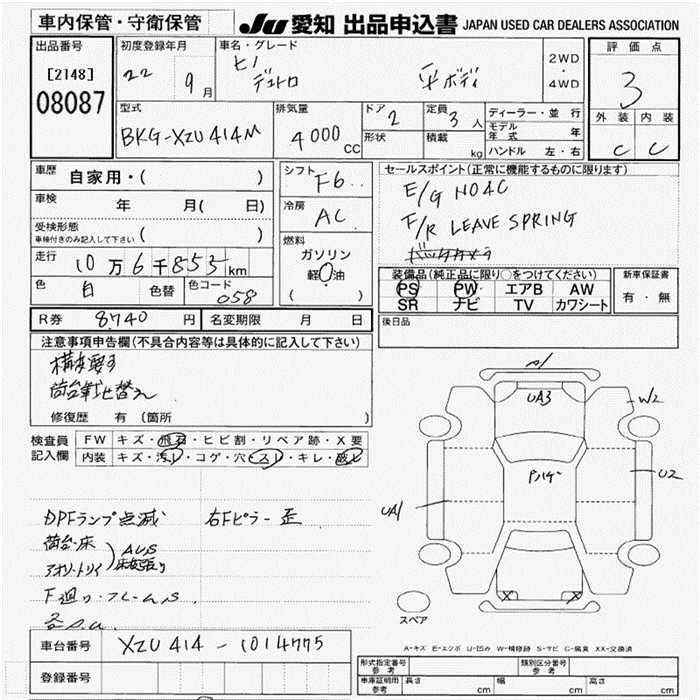 車内保管・守衛保管
JU 愛知 出品申込書 JAPAN USED CAR DEALERS ASSOCIATION
出品番号
[2148]
08087
初度登録年月
22 9 月
車名・グレード
ヒノ
デュトロ 平ボディ
2WD
・
4WD
評価点
3
外装 内装
C C
型式
BKG-XZU414M
排気量
4000 CC
ドア 2
形状
定員 3 人
積載 kg
ディーラー・並行
モデル年式 年
ハンドル 左・右
車歴 自家用・( )
車検 年 月( 日)
受検形態
車検付きのみ記入して下さい ( )
走行 10万6千853 km
色 白 色替 色コード 058
シフト F6
冷房 AC
燃料
ガソリン
軽油
( )
セールスポイント(正常に機能するものに限ります)
E/G N04C
F/R LEAVE SPRING
バックカメラ
装備品(純正品に限り○をつけてください)
PS PW エアB AW
SR ナビ TV カワシート
新車保証書
有・無
後日品
R券 8,740 円 名変期限 月 日
注意事項申告欄(不具合内容等は具体的に記入して下さい)
構変要す
荷台載せ替え
修復歴 有 (箇所 )
検査員記入欄
FW キズ・飛石・ヒビ割・リペア跡・X要
内装 キズ・汚レ・コゲ・穴・スレ・キレ・破レ
DPFランプ点滅 右Fピラー歪
荷台・床
アオリ・トリイ
F廻り・フレームS
各S.U.
A/
UA3
W2
U2
UA1
X X
スペア
A-キズ E-エクボ U-凹み W-補修跡 S-サビ C-腐食 XX-交換済
車台番号 XZU414-1014775
登録番号
形式指定番号 参考
類別区分番号 参考
車庫証明用 参考 長さ cm 幅 cm 高さ cm